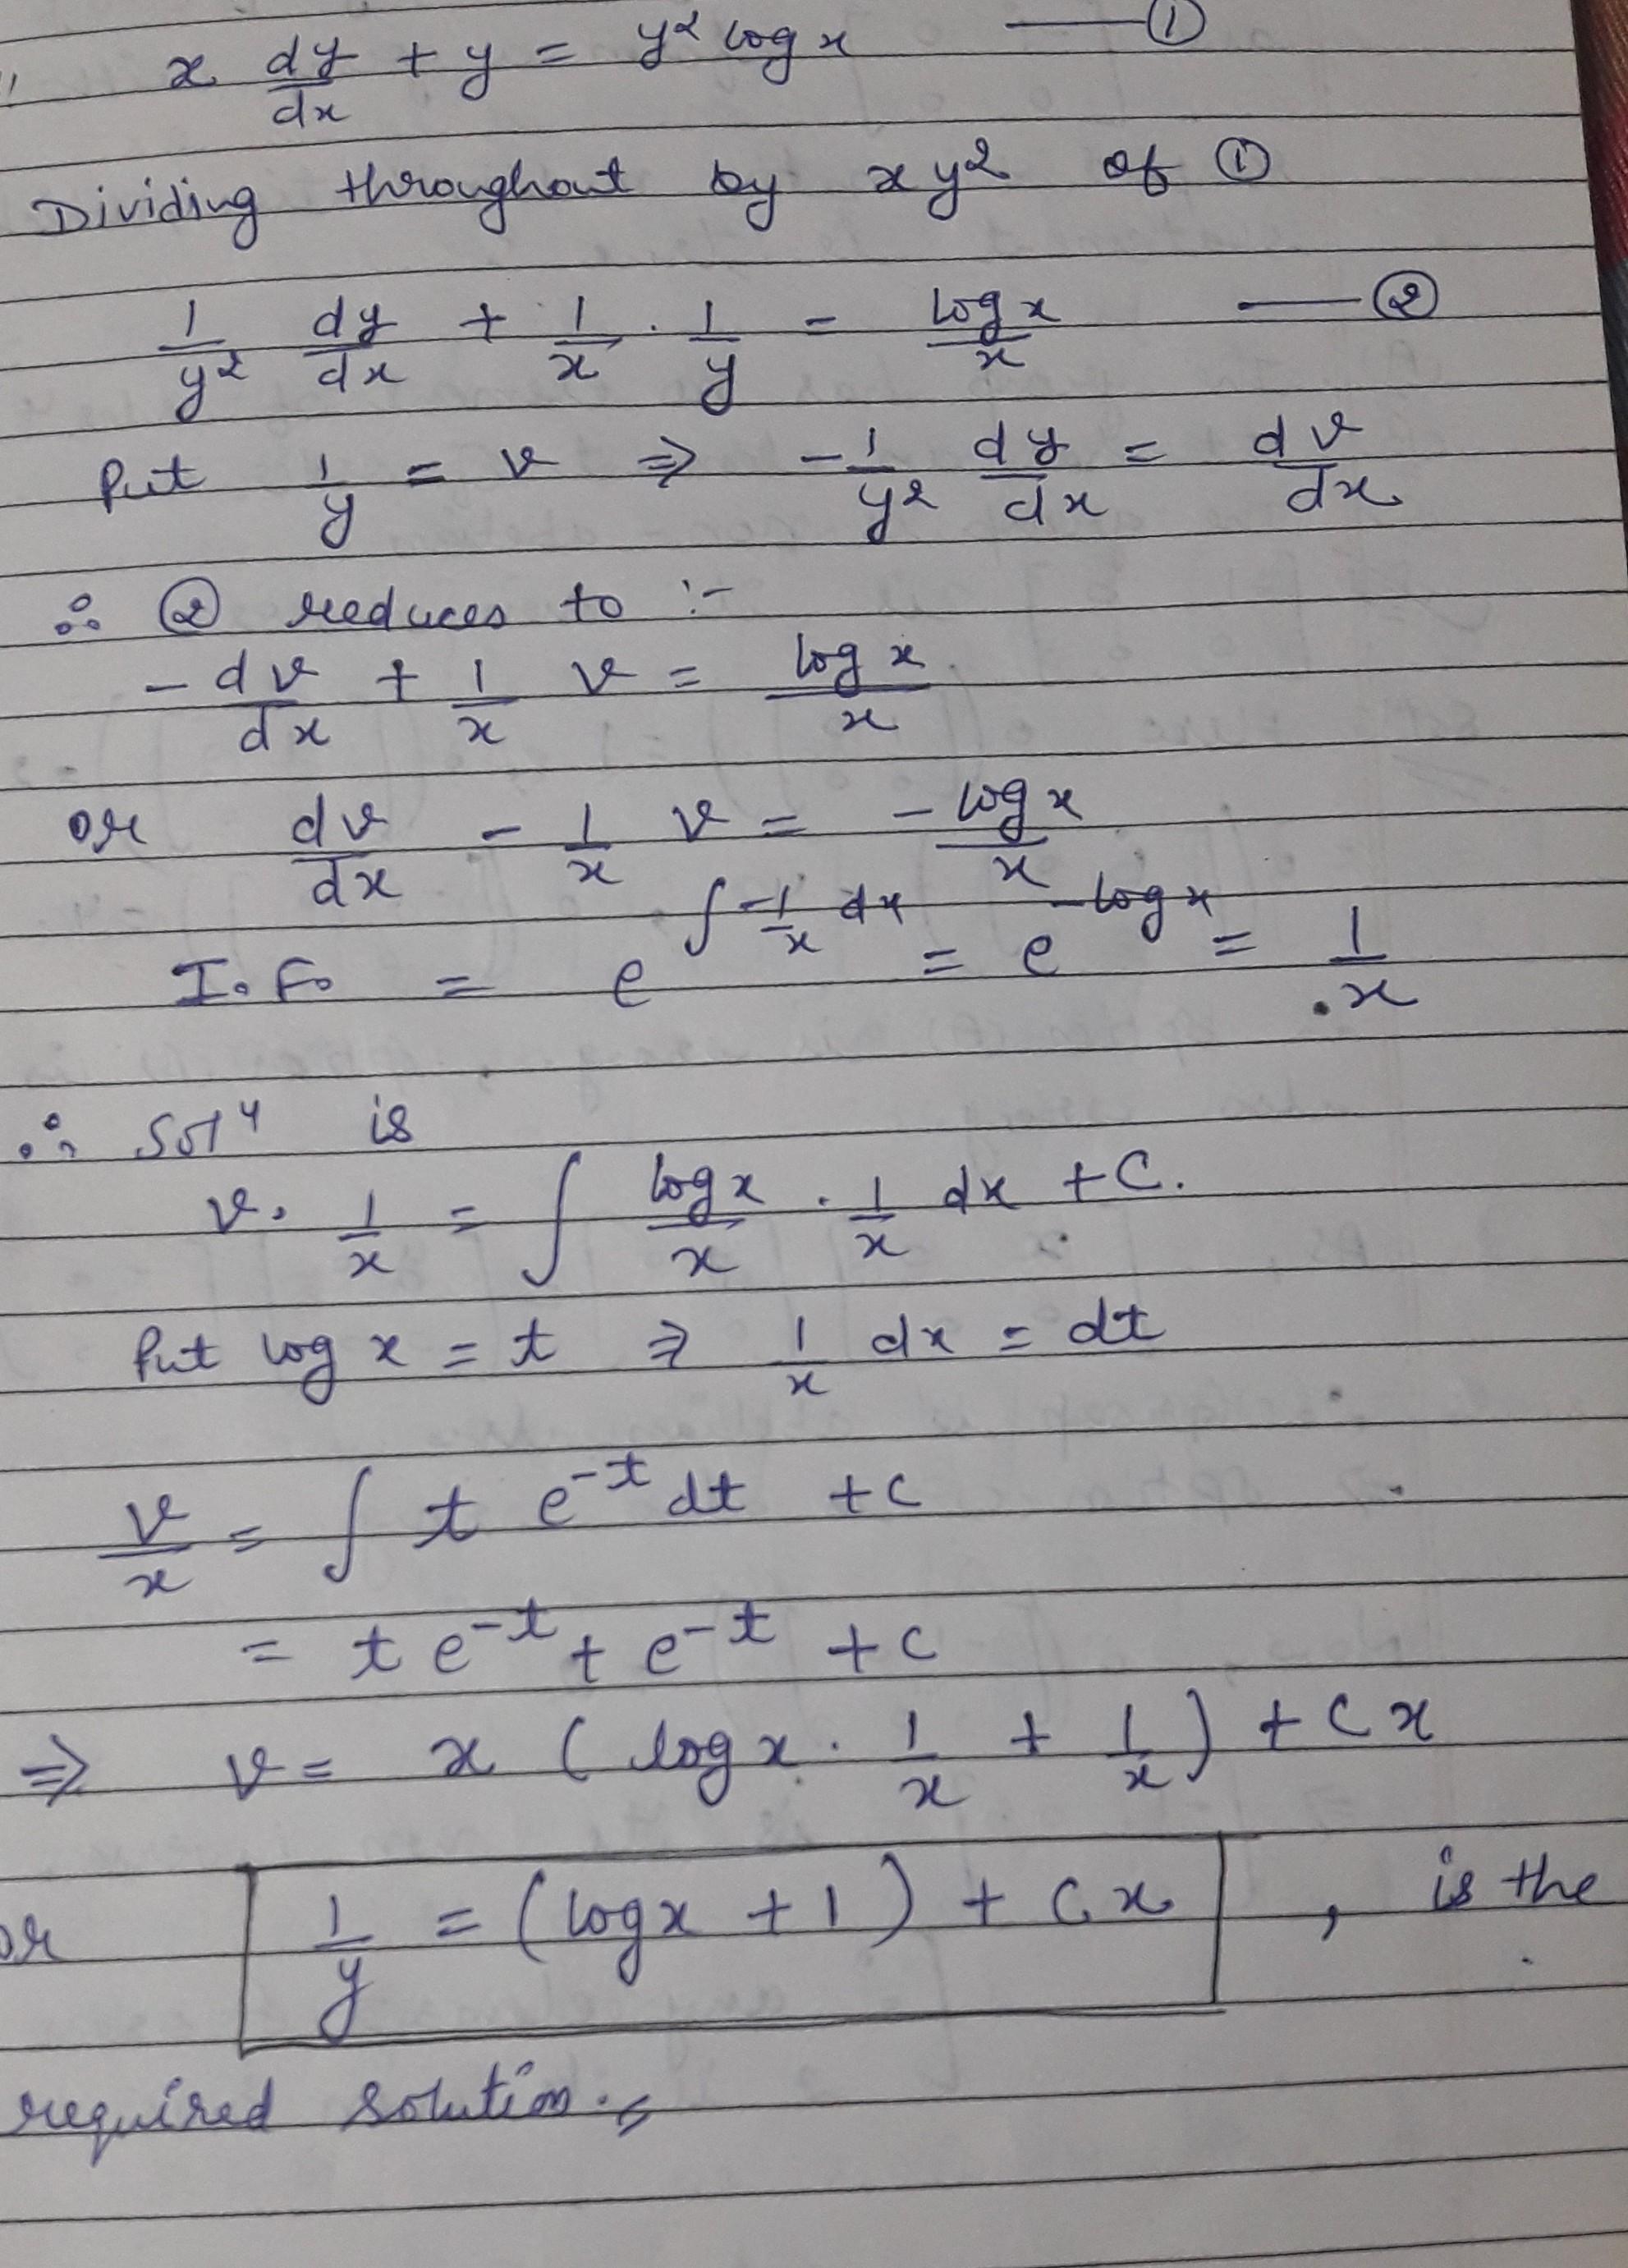 x dy/dx + y = y² log x —— ①
Dividing throughout by xy² of ①
1/y² dy/dx + 1/x . 1/y = log x/x —— ②
Put 1/y = v ⇒ -1/y² dy/dx = dv/dx
∴ ② reduces to :-
- dv/dx + 1/x v = log x/x
or dv/dx - 1/x v = - log x/x
I.F. = e^(∫ -1/x dx) = e^(-log x) = 1/x
∴ Solⁿ is
v. 1/x = ∫ log x/x . 1/x dx + C.
Put log x = t ⇒ 1/x dx = dt
v/x = ∫ t e^(-t) dt + c
= t e^(-t) + e^(-t) + c
⇒ v = x ( log x . 1/x + 1/x ) + c x
or 1/y = (log x + 1) + c x , is the
required solution.